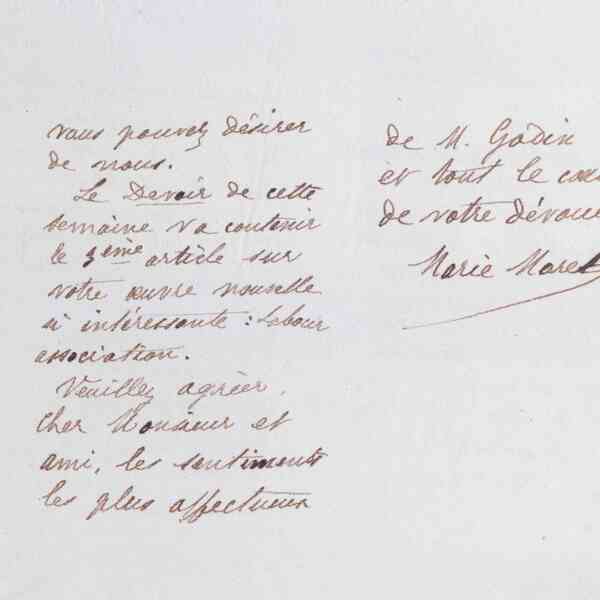 vous pouvez désirer
de nous.
Le Devoir de cette
semaine va contenir
le 3ème article sur
votre œuvre nouvelle
si intéressante : Labour
association.
Veuillez agréer,
cher Monsieur et
ami, les sentiments
les plus affectueux
de M. Godin
et tout le
de votre
Marie Moret